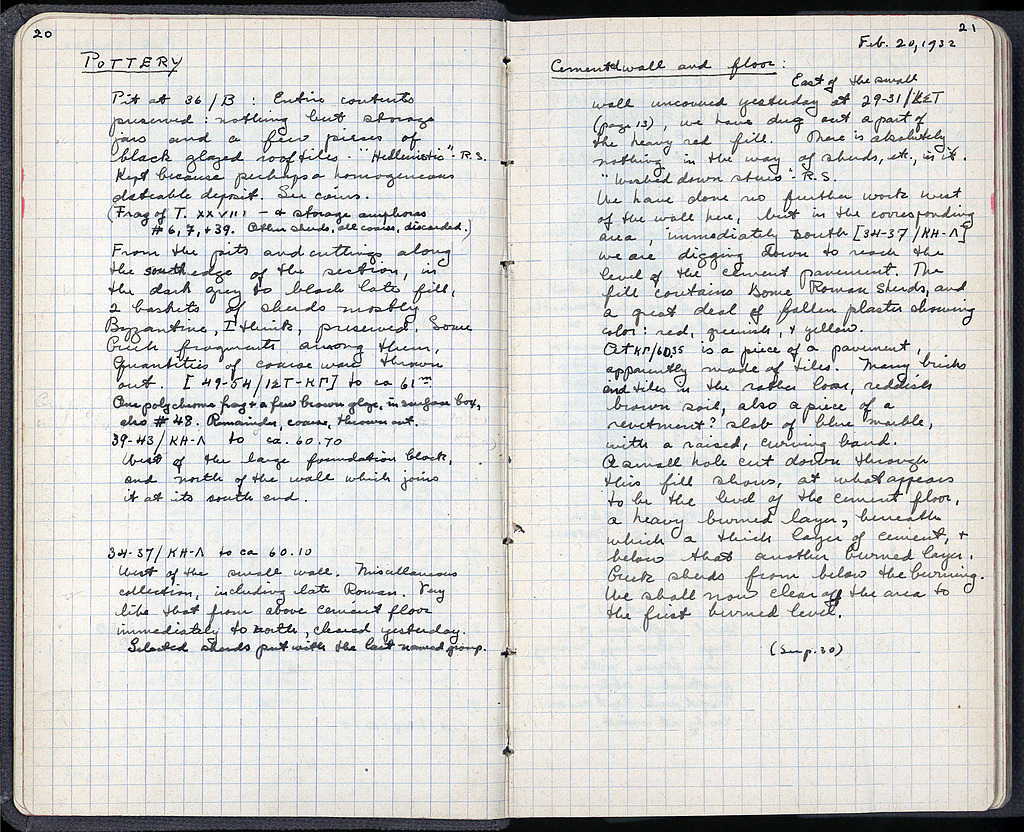 20
POTTERY
Pit at 36/B : Entire contents
preserved : nothing but storage
jars and a few pieces of
black glazed rooftiles. "Hellenistic"- R.S.
Kept because perhaps a homogeneous
dateable deposit. See coins.
(Frag of T. XXVIII — & storage amphoras
# 6, 7, + 39. Other sherds, all coarse, discarded.)
From the pits and cuttings along
the south edge of the section, in
the dark grey to black late fill,
2 baskets of sherds mostly
Byzantine, I think, preserved. Some
Greek fragments among them,
Quantities of coarse ware thrown
out. [49-54/ΙΣΤ-ΚΓ] to ca 61 m
One polychrome frag + a few brown glaze, in surface box,
also # 48. Remainder, coarse, thrown out.
39-43/ΚΗ-Λ to ca. 60.70
West of the large foundation block,
and north of the wall which joins
it at its south end.
34-37/ΚΗ-Λ to ca 60.10
West of the small wall. Miscellaneous
collection, including late Roman. Very
like that from above cement floor
immediately to north, cleared yesterday.
Selected sherds put with the last named group.
21
Feb. 20, 1932
Cement wall and floor :
East of the small
wall uncovered yesterday at 29-31/ΚΣΤ
(page 13), we have dug out a part of
the heavy red fill. There is absolutely
nothing in the way of sherds, etc., in it.
"Washed down stereo"- R.S.
We have done no further work west
of the wall here, but in the corresponding
area, immediately south [34-37/ΚΗ-Λ]
we are digging down to reach the
level of the cement pavement. The
fill contains some Roman sherds, and
a great deal of fallen plaster showing
color: red, greenish, + yellow.
At ΚΓ/60.35 is a piece of a pavement,
apparently made of tiles. Many bricks
and tiles in the rather loose, reddish
brown soil, also a piece of a
revetment? slab of blue marble,
with a raised, curving band.
A small hole cut down through
this fill shows, at what appears
to be the level of the cement floor,
a heavy burned layer, beneath
which a thick layer of cement, +
below that another burned layer.
Greek sherds from below the burning.
We shall now clear off the area to
the first burned level.
(See p. 30)